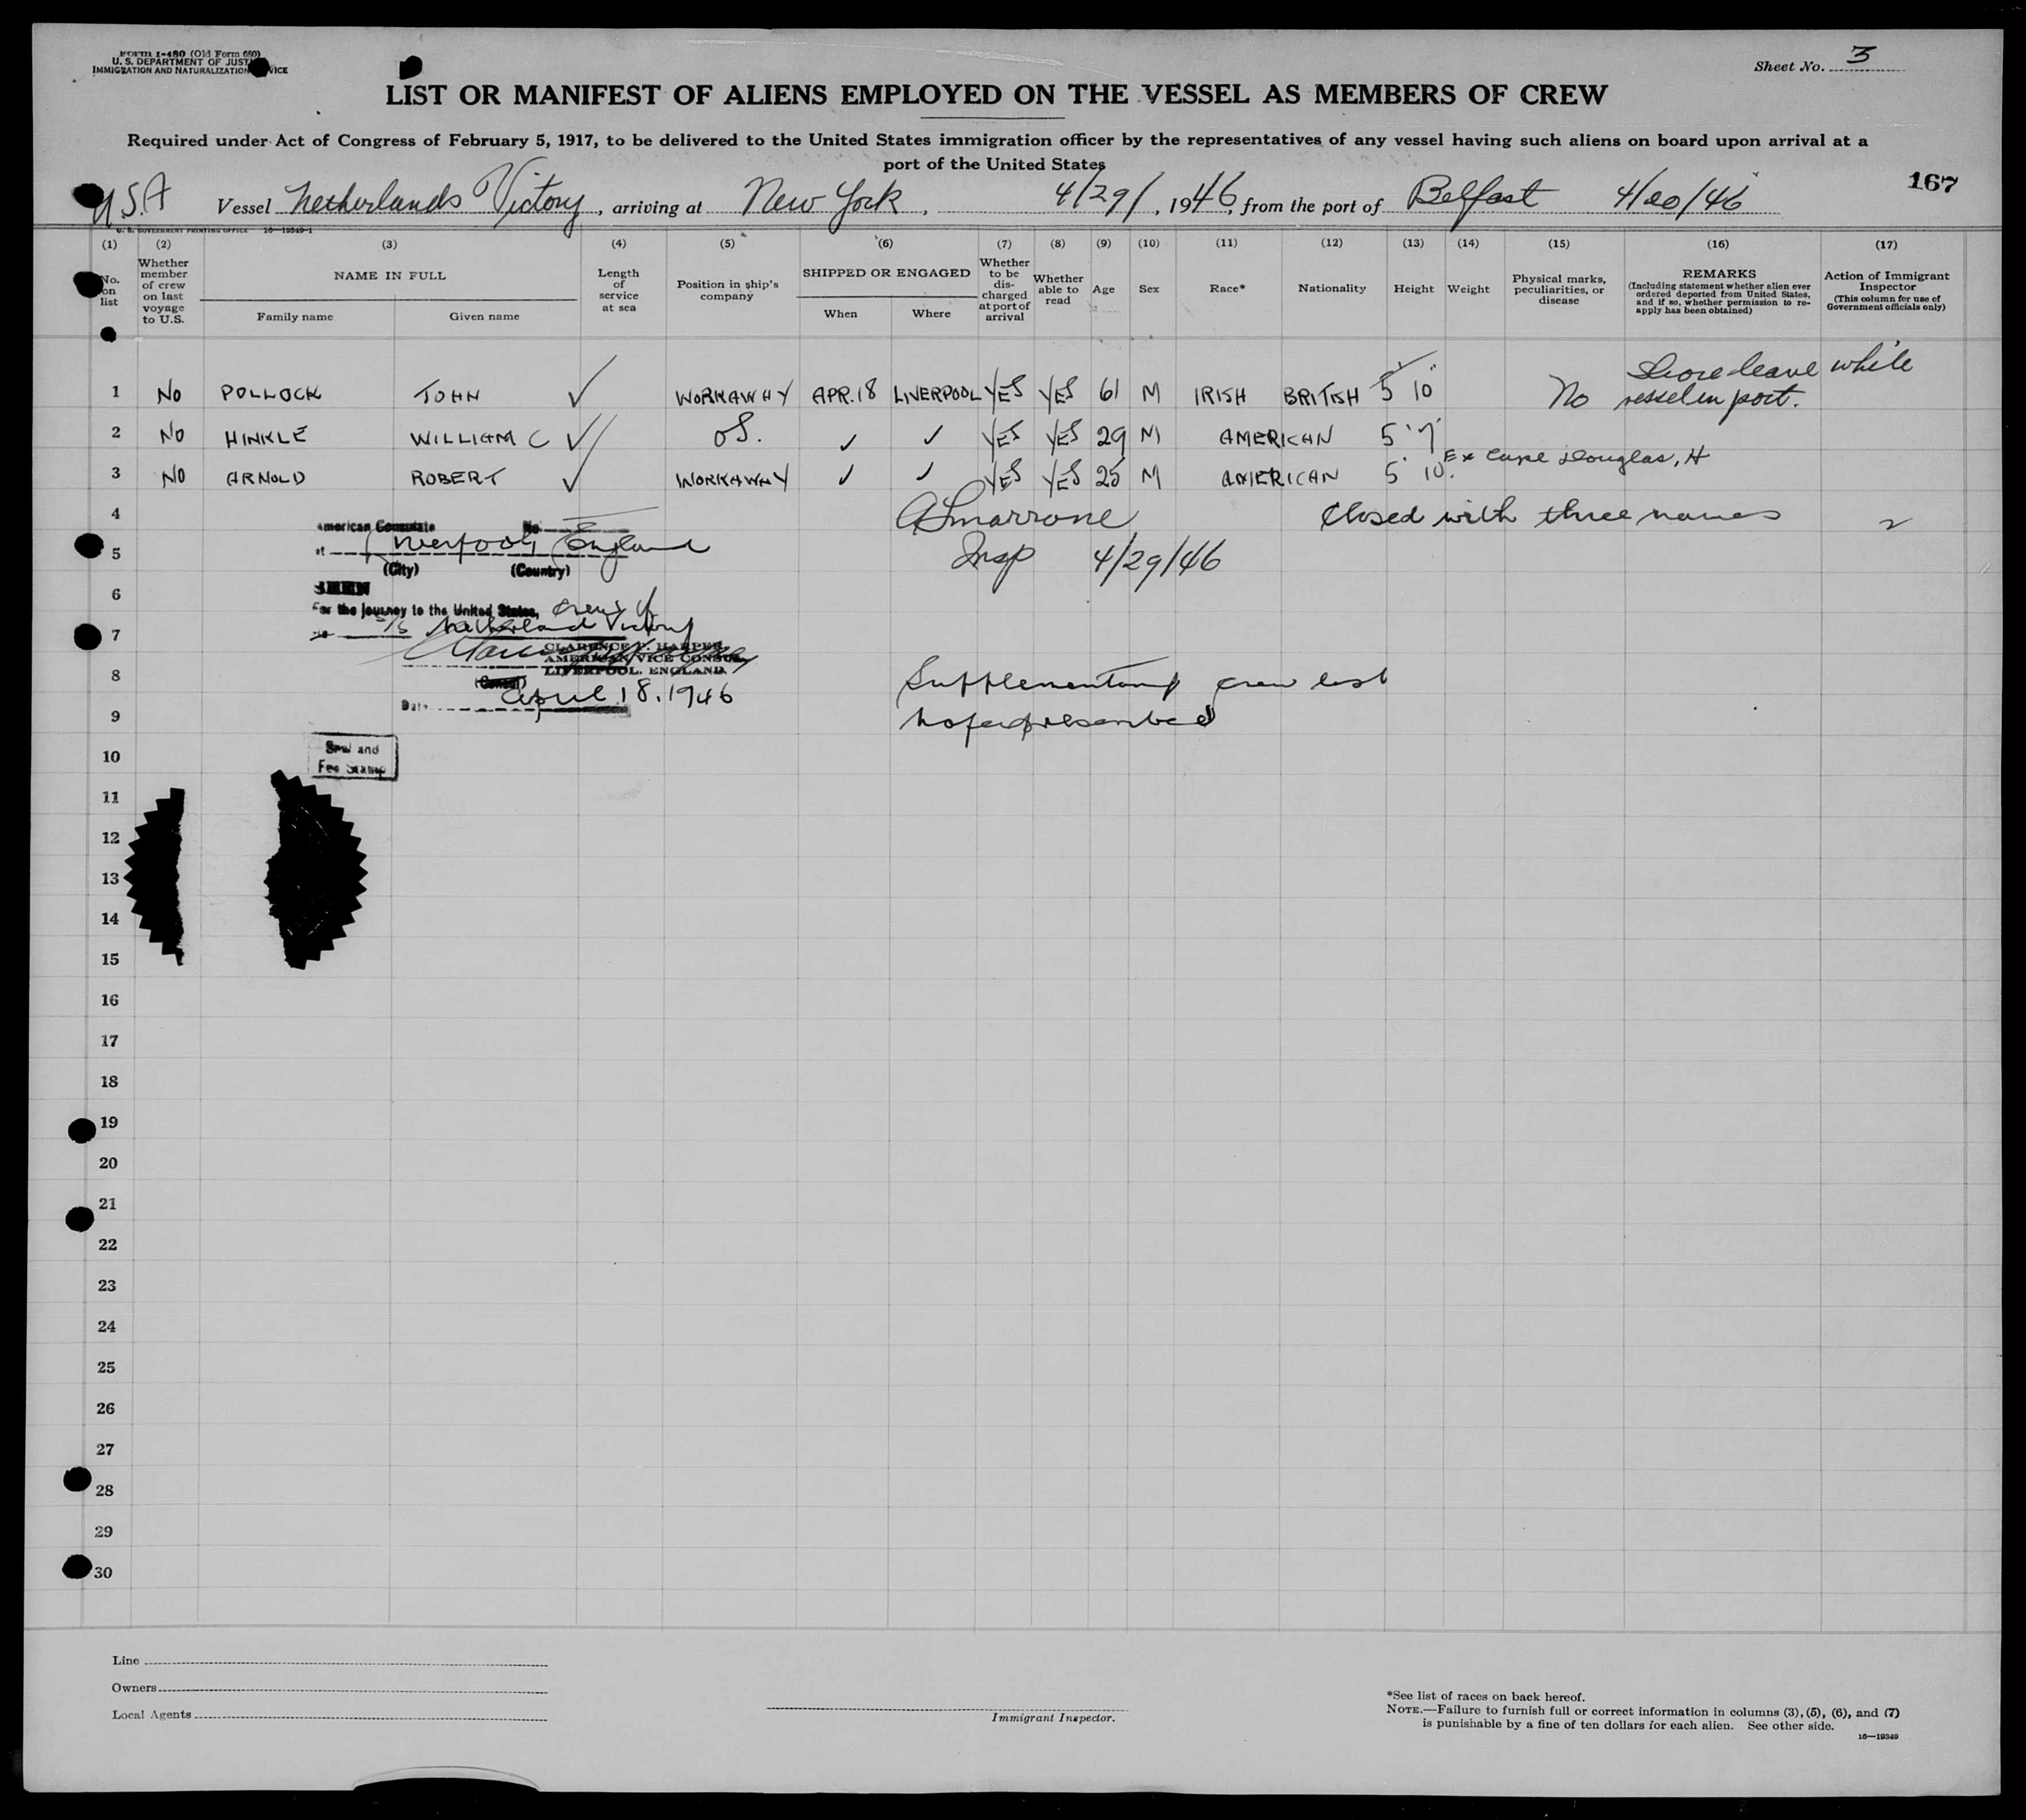 Form I-480 (Old Form 680)
U. S. DEPARTMENT OF JUSTICE
IMMIGRATION AND NATURALIZATION SERVICE
Sheet No. 3
LIST OR MANIFEST OF ALIENS EMPLOYED ON THE VESSEL AS MEMBERS OF CREW
Required under Act of Congress of February 5, 1917, to be delivered to the United States immigration officer by the representatives of any vessel having such aliens on board upon arrival at a
port of the United States
167
USA Vessel Netherlands Victory, arriving at New York, 4/29/, 1946, from the port of Belfast 4/20/46
U. S. GOVERNMENT PRINTING OFFICE 16—19349-1
(1) (2) (3) (4) (5) (6) (7) (8) (9) (10) (11) (12) (13) (14) (15) (16) (17)
No. on list
Whether member of crew on last voyage to U.S.
NAME IN FULL
Family name Given name
Length of service at sea
Position in ship's company
SHIPPED OR ENGAGED
When Where
Whether to be discharged at port of arrival
Whether able to read
Age
Sex
Race*
Nationality
Height
Weight
Physical marks, peculiarities, or disease
REMARKS
(Including statement whether alien ever ordered deported from United States, and if so, whether permission to re-apply has been obtained)
Action of Immigrant Inspector
(This column for use of Government officials only)
1 No POLLOCK JOHN ✓ WORKAWAY APR. 18 LIVERPOOL YES YES 61 M IRISH BRITISH 5 10" No Shore leave while vessel in port.
2 NO HINKLE WILLIAM C ✓ O.S. ✓ ✓ YES YES 29 M AMERICAN 5' 7
3 NO ARNOLD ROBERT ✓ WORKAWAY ✓ ✓ YES YES 25 M AMERICAN 5' 10" Ex Cape Douglas, H
4 A Smarrone Closed with three names
American Consulate No.
5 at Liverpool, England Insp 4/29/46
(City) (Country)
6 SEEN
For the journey to the United States, Crew of
7 S/S Netherland Victory
CLARENCE P. HARPER
AMERICAN VICE CONSUL
8 LIVERPOOL, ENGLAND
(Consul)
Date April 18, 1946
Supplementary crew list
9
10 Seal and
Fee Stamp
11
12
13
14
15
16
17
18
19
20
21
22
23
24
25
26
27
28
29
30
Line
Owners
Local Agents
Immigrant Inspector.
*See list of races on back hereof.
NOTE.—Failure to furnish full or correct information in columns (3), (5), (6), and (7)
is punishable by a fine of ten dollars for each alien. See other side.
16—19349